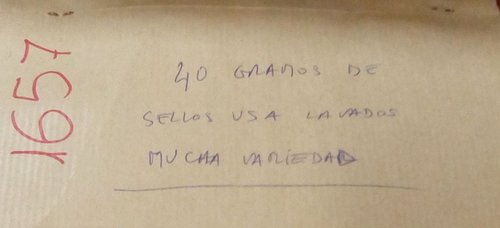 1657
40 GRAMOS DE
SELLOS USA LAVADOS
MUCHA VARIEDAD